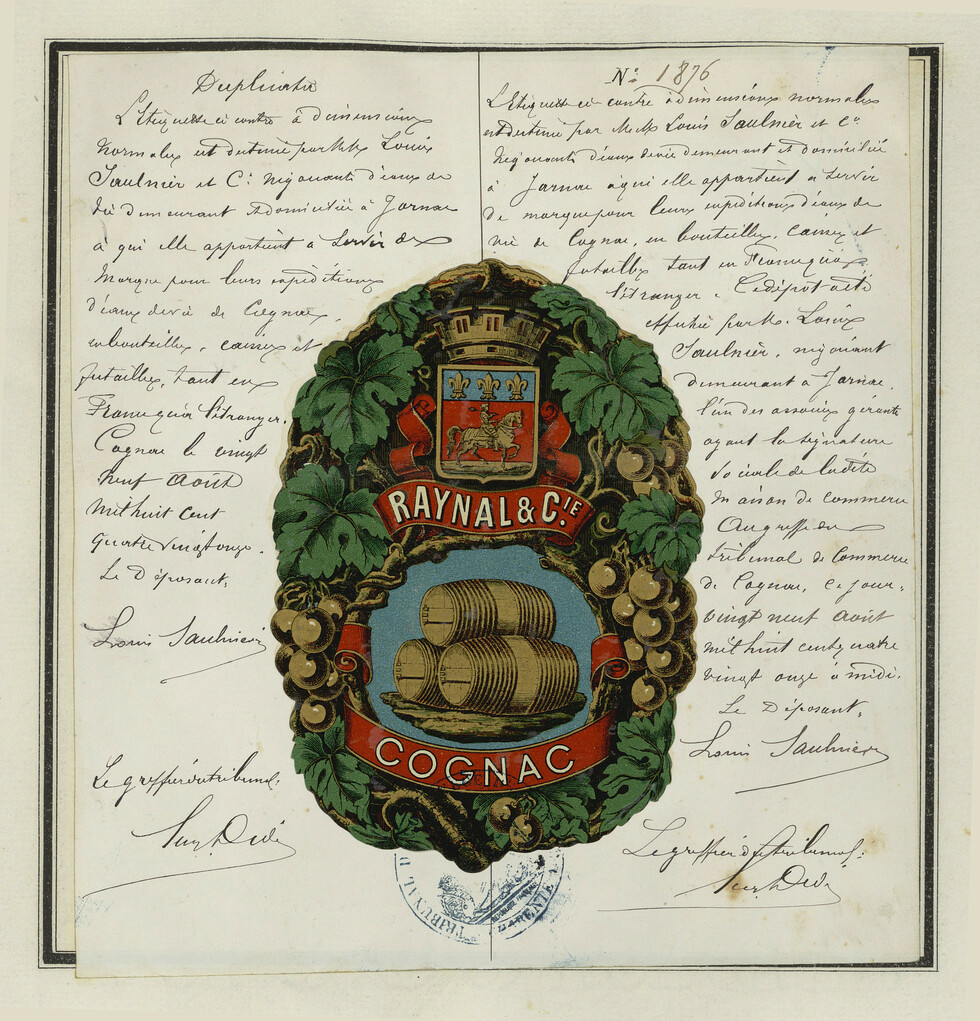 Duplicata
L'Etiquette ci contre à dimensions
normales est destinée par MM. Louis
Saulnier et Cie négociants d'eaux de
vie demeurant et domiciliés à Jarnac
à qui elle appartient à servir de
marque pour leurs expéditions
d'eaux de vie de Cognac,
en bouteilles, caisses et
futailles, tant en
France qu'à l'étranger.
Cognac le vingt
neuf Août
mil huit cent
quatre vingt onze.
Le Déposant,
Louis Saulnier
Le greffier du tribunal,
No: 1876
L'Etiquette ci contre à dimensions normales
est destinée par MM. Louis Saulnier et Cie
négociants d'eaux de vie demeurant et domiciliés
à Jarnac à qui elle appartient à servir
de marque pour leurs expéditions d'eaux de
vie de Cognac, en bouteilles, caisses et
futailles tant en France qu'à
l'étranger. Ce dépôt a été
effectué par M. Louis
Saulnier, négociant
demeurant à Jarnac,
l'un des associés gérants
ayant la signature
sociale de ladite
maison de commerce
au greffe du
tribunal de Commerce
de Cognac, ce jour,
vingt neuf Août
mil huit cent quatre
vingt onze à midi.
Le Déposant,
Louis Saulnier
Le greffier du tribunal,
RAYNAL & C.IE
COGNAC
TRIBUNAL D
CHARENTE